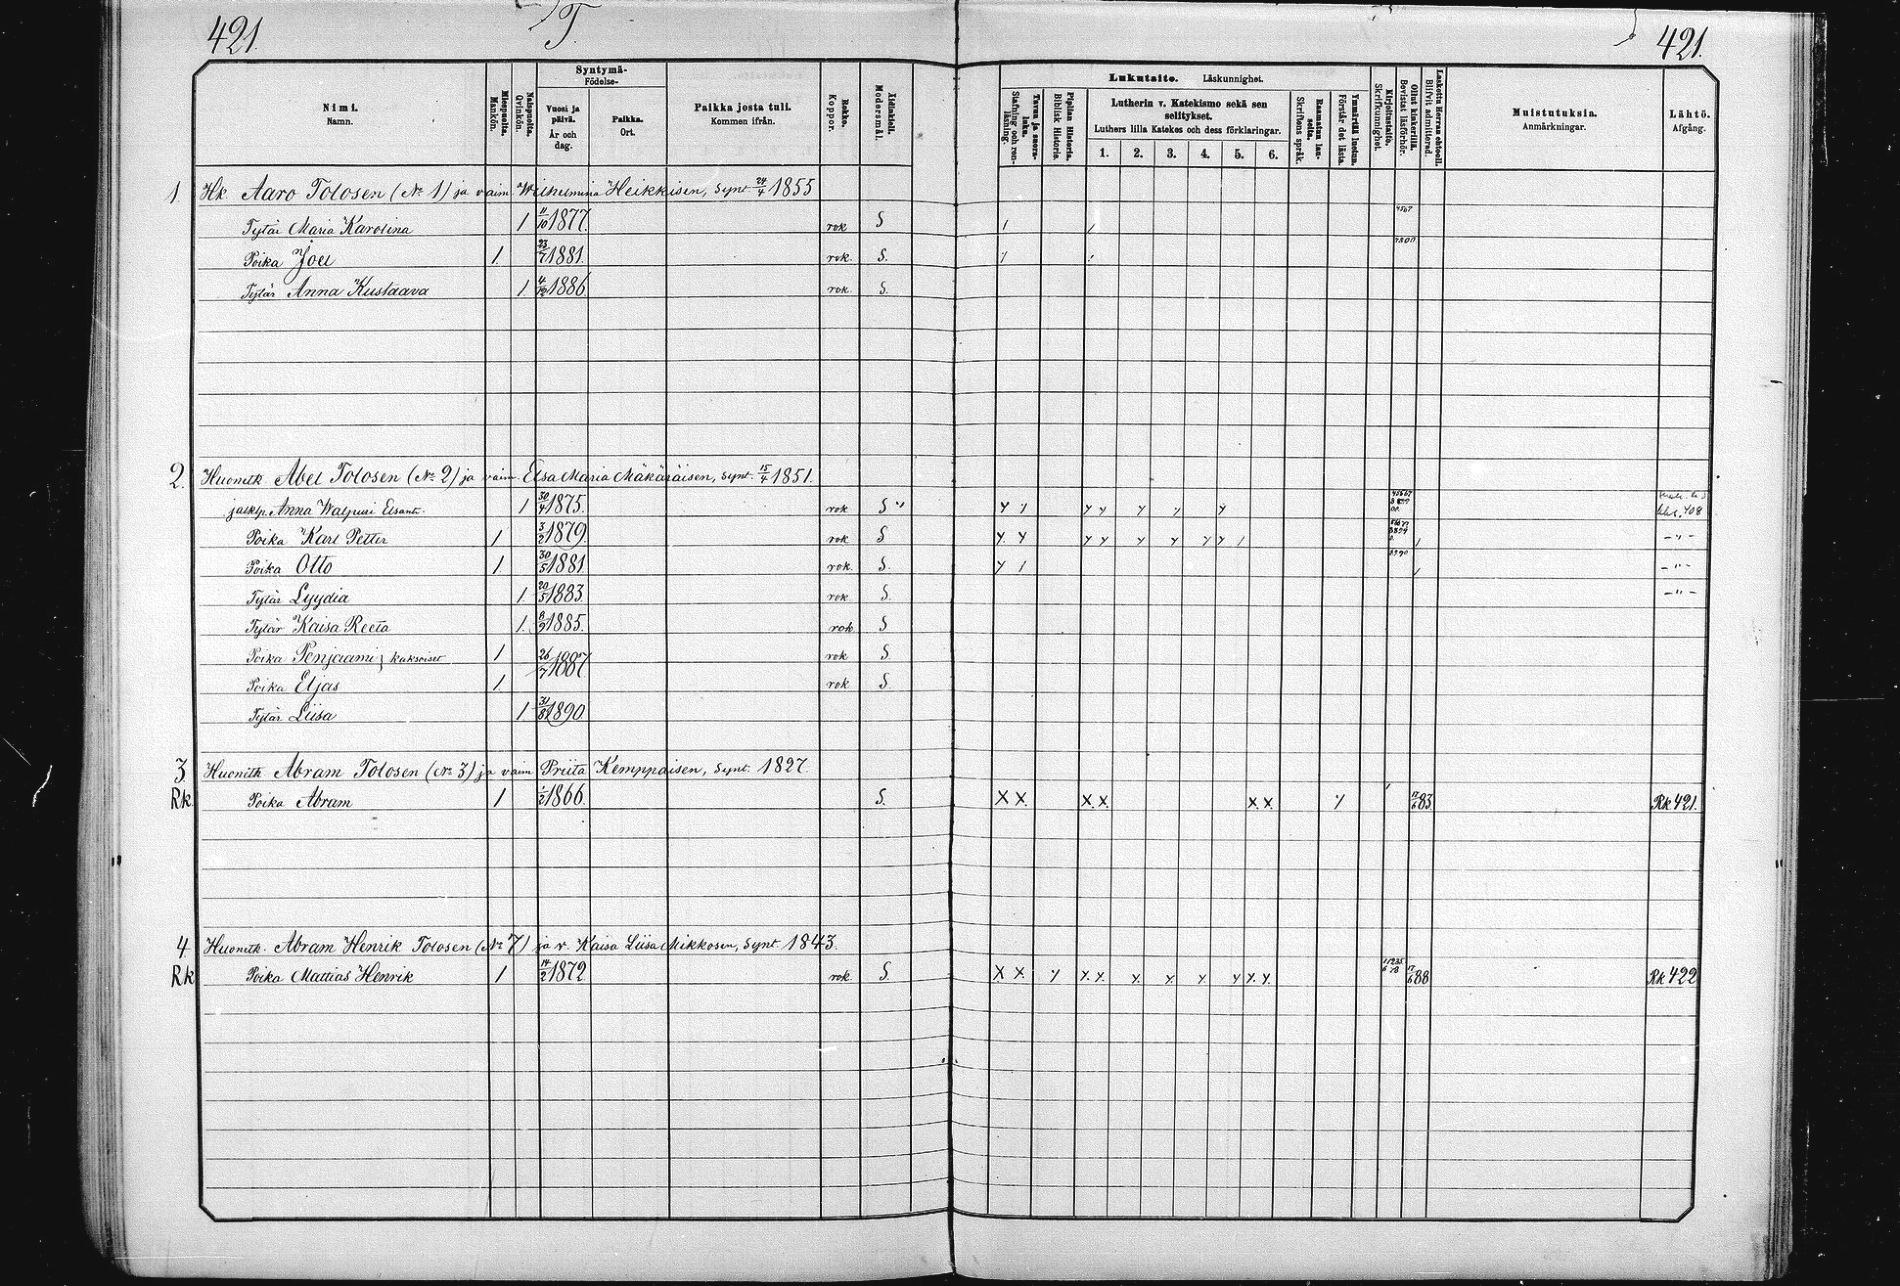 421. T. 421.
Syntymä-
Födelse-
Nimi.
Namn.
Miespuolia.
Mankön.
Naispuolia.
Qvinkön.
Vuosi ja päivä.
År och dag.
Paikka.
Ort.
Paikka josta tuli.
Kommen ifrån.
Rokko.
Koppor.
Äidinkieli.
Modersmål.
Lukutaito. Läskunnighet.
Tavan ja suora-luku.
Stafning och ren-läsning.
Piplian Historia.
Biblisk Historia.
Lutherin v. Katekismo sekä sen selitykset.
Luthers lilla Katekes och dess förklaringar.
1. 2. 3. 4. 5. 6.
Raamatun lau-seita.
Skriftens språk.
Ymmärtää luetun.
Förstår det lästa.
Kirjoitustaito.
Skrifkunnighet.
Ollut kinkerillä.
Bevistat läsförhör.
Laskettu Herran ehtooll.
Blifvit admitterad.
Muistutuksia.
Anmärkningar.
Lähtö.
Afgång.
1. Hk. Aaro Tolosen (No 1) ja vaim Wilhelmina Heikkisen, synt 24/4 1855
Tytär Maria Karolina 1 11/10 1877. rok S
Poika Joel 1. 23/7 1881. rok. S.
Tytär Anna Kustaava 1. 1886 rok. S.
2. Huonth Abel Tolosen (No 2) ja vaim Elsa Maria Mäkäräisen, synt. 15/4 1851.
Anna Walpuri 1 30/4 1875. rok S y / y y y y y 408
Poika Karl Petter 1 3/2 1879. rok S y. y y y y y y y / / - " -
Poika Otto 1. 30/5 1881 rok. S. y / / - " -
Tytär Lyydia 1. 20/5 1883. rok S. - " -
Tytär Kaisa Reeta 1. 8/9 1885. rok S
Poika Penjaami } kaksoiset 1 26/7 1887 rok S.
Poika Eljas 1. rok S.
Tytär Liisa 1 1890
3. Huonth Abram Tolosen (No 3) ja vaim Priita Kemppaisen, synt. 1827.
Rk. Poika Abram 1 1/2 1866. S. X X. X. X. X. X. y 83 Rk 421.
4. Huonth. Abram Henrik Tolosen (No 7) ja v. Kaisa Liisa Mikkosen, synt. 1843.
Rk Poika Mattias Henrik 1 14/2 1872 rok. S. X X. y y. y. y. y. y. y y. y. 17/6 88 Rk 422